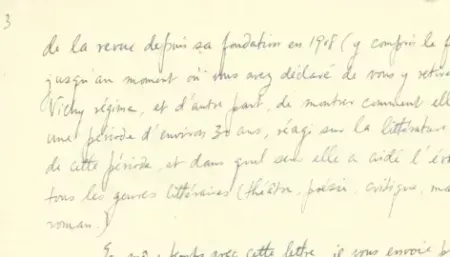 3
de la revue depuis sa fondation en 1908 (y compris la
jusqu'au moment où vous avez déclaré de vous y retirer
Vichy régime, et d'autre part, de montrer comment elle
une période d'environ 30 ans, réagi sur la littérature
de cette période, et dans quel sens elle a aidé l'év
tous les genres littéraires (théâtre, poésie, critique,
roman.)
temps avec cette lettre, je vous envoie